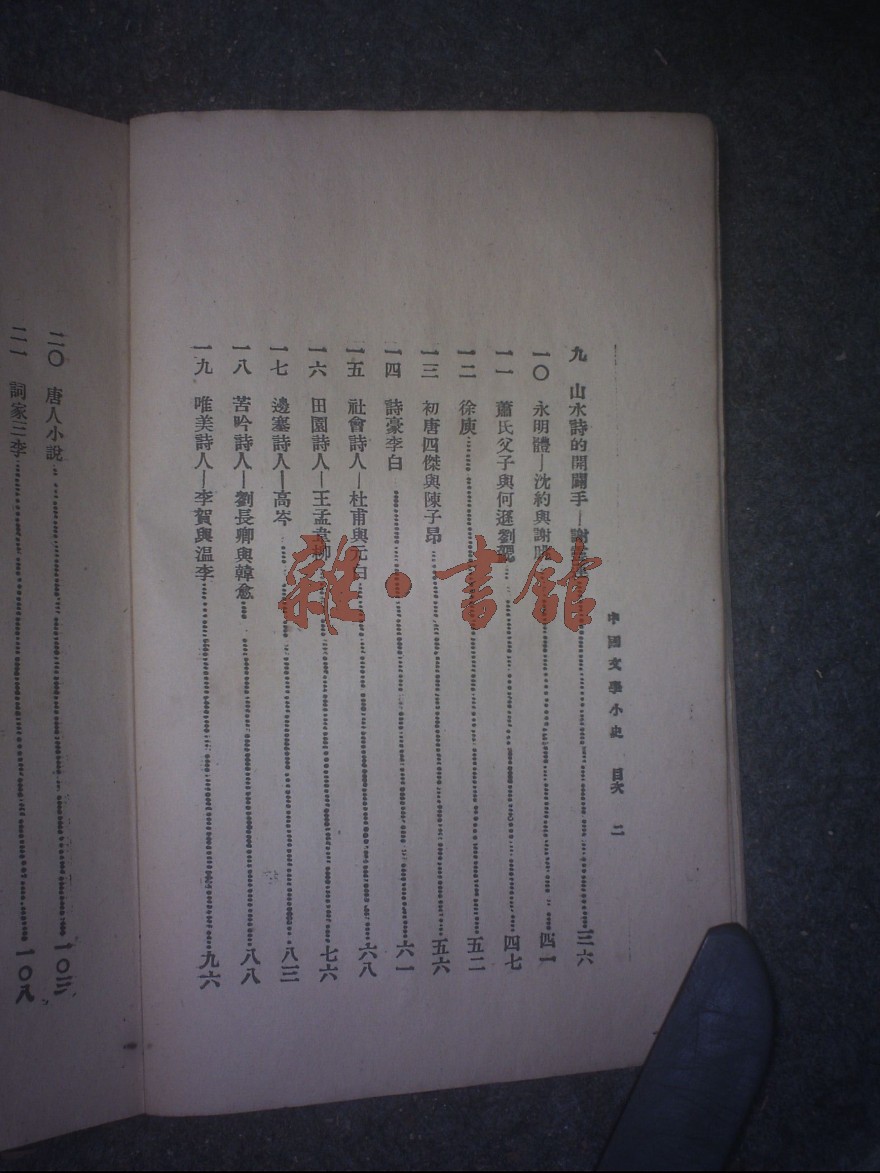 中國文學小史 目次 二
九 山水詩的開闢手—謝靈運 三六
一〇 永明體—沈約與謝朓 四一
一一 蕭氏父子與何遜劉勰 四七
一二 徐庾 五二
一三 初唐四傑與陳子昂 五六
一四 詩豪李白 六一
一五 社會詩人—杜甫與元白 六八
一六 田園詩人—王孟韋柳 七六
一七 邊塞詩人—高岑 八三
一八 苦吟詩人—劉長卿與韓愈 八八
一九 唯美詩人—李賀與温李 九六
二〇 唐人小說 一〇三
二一 詞家三李 一〇八
雜·書館